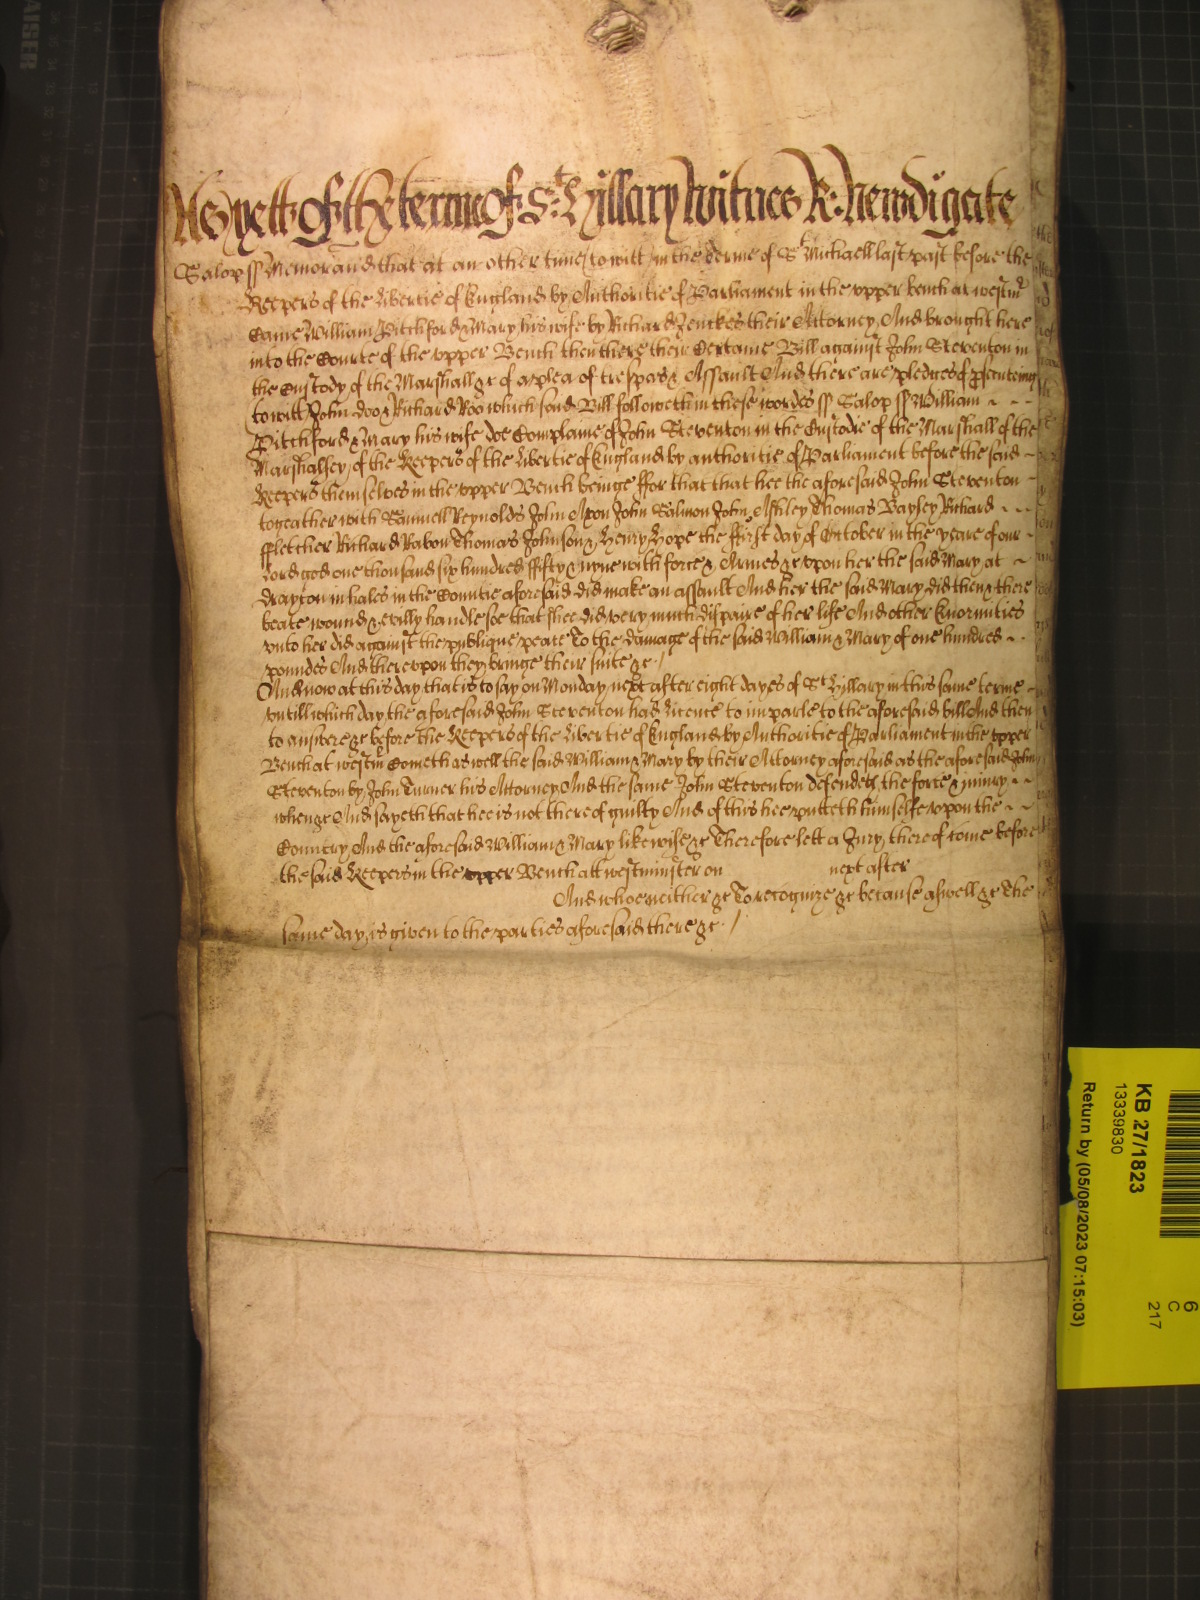 As yett of the terme of St: Hillary Witnes R: Newdigate
Salop ss Memorand that at an other time to witt in the terme of St Michaell last past before the
Keepers of the libertie of England by Authoritie of Parliament in the upper bench at westmr
Came William Pitchford & Mary his wife by Richard Jenckes their Attorney And brought here
into the Courte of the upper Bench then there their Certaine Bill against John Steventon in
the Custody of the Marshall &c of a plea of trespas & Assault And there are pledges of prosecuteing
to witt John doo & Richard Roo which said Bill followeth in these wordes ss Salop ss William
Pitchford & Mary his wife doe Complaine of John Steventon in the Custodie of the Marshall of the
Marshalsey of the Keepers of the libertie of England by authoritie of Parliament before the said
Keepers themselves in the upper Bench beinge ffor that that hee the aforesaid John Steventon
togeather with Samuell Reynolds John Axon John Salmon John Ashley Thomas Baysey Richard
ffletcher Richard Rabon Thomas Johnson & Henry Hope the ffirst day of October in the yeare of our
Lord god one thousand six hundred ffifty & nyne with force & Armes &c upon her the said Mary at
drayton in hales in the Countie aforesaid did make an assault And her the said Mary did then & there
beate wound & evilly handle soe that shee did very much dispaire of her life And other Enormities
unto her did against the publique peace To the damage of the said William & Mary of one hundred
poundes And thereupon they bringe their suite &c
And now at this day that is to say on Monday next after eight dayes of St Hillary in this same terme
untill which day the aforesaid John Steventon had licence to imparle to the aforesaid bill And then
to answere &c before the Keepers of the libertie of England by Authoritie of Parliament in the upper
Bench at westmr Cometh as well the said William & Mary by their Attorney aforesaid as the aforesaid John
Steventon by John Turner his Attorney And the same John Steventon defendeth the force & iniury
when &c And sayeth that hee is not thereof guilty And of this hee putteth himselfe upon the
Country And the aforesaid William & Mary likewise &c Therefore lett a Jury thereof come before
the said Keepers in the upper Bench att westminster on next after
And who neither &c To recognize &c because aswell &c The
same day is given to the parties aforesaid there &c
KB 27/1823
13339830
Return by (05/08/2023 07:15:03)
6
C
217